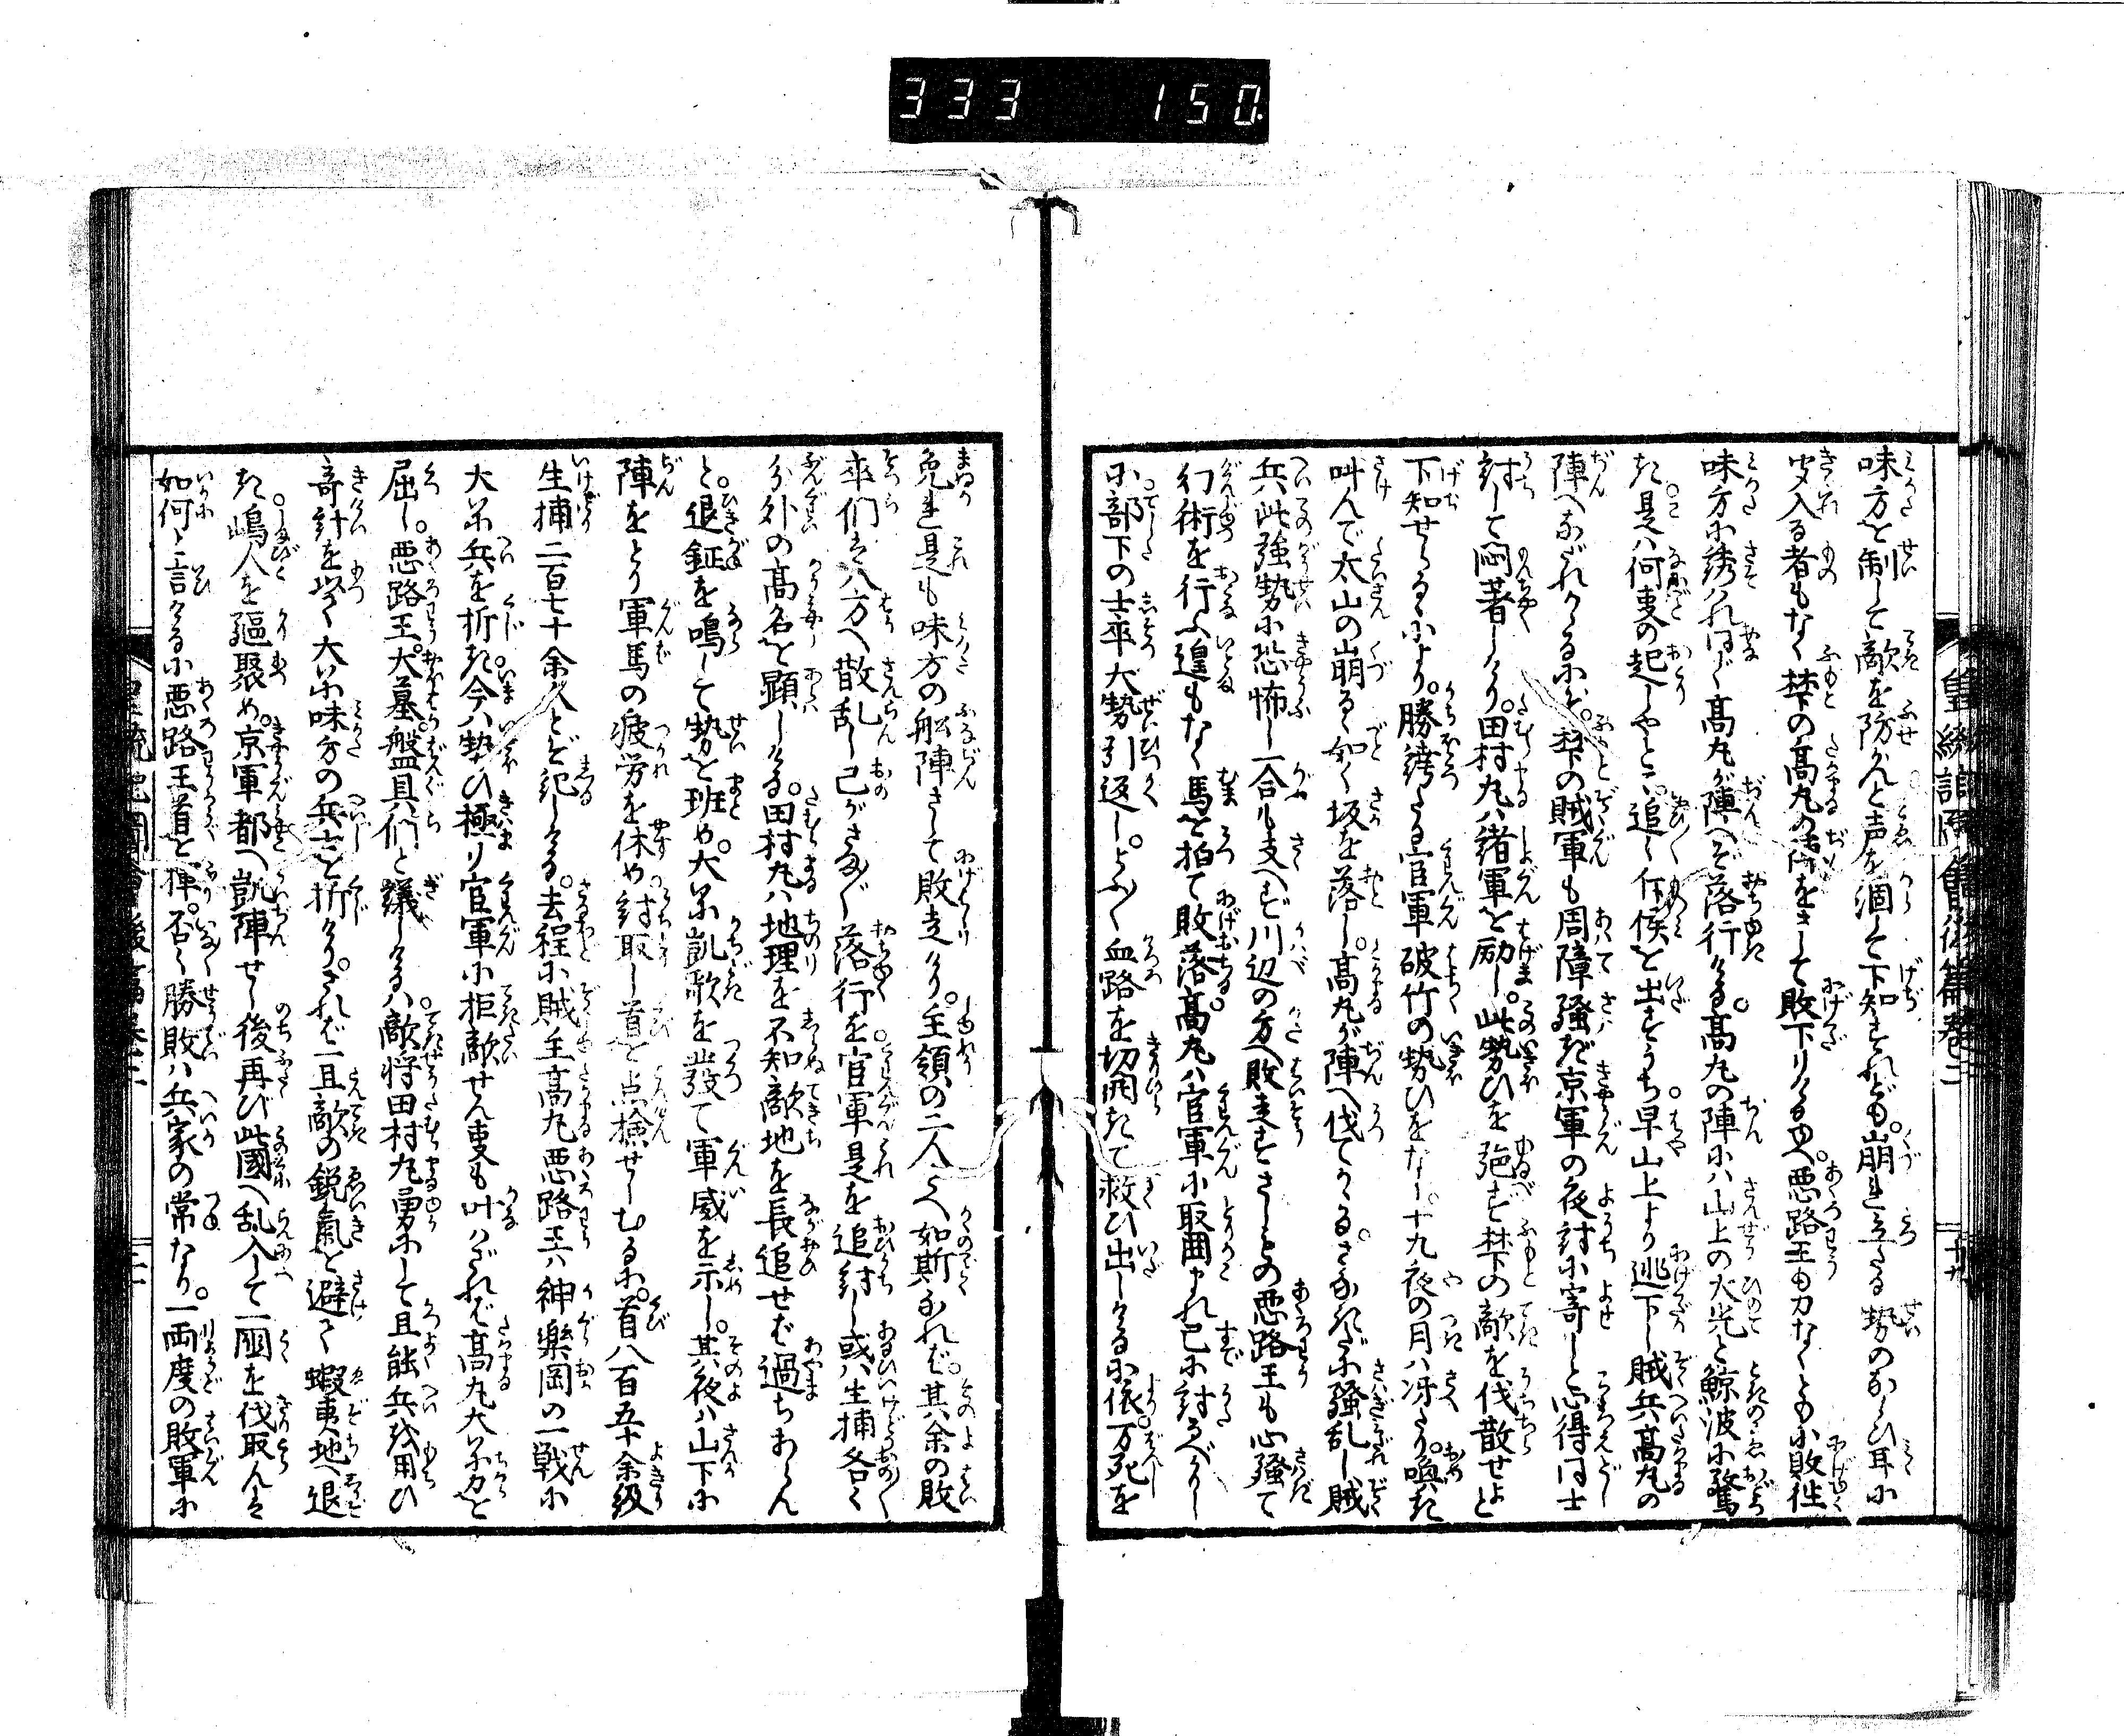 333 150
味方を制して敵を防がんと声を涸して下知すれども。崩れ立たる勢のならひ耳に
聞入る者もなく梺の高丸の陣をさして敗下りける故。悪路王も力なくともに敗徃
味方に誘れほど高丸が陣へぞ落行ける。高丸の陣には山上の火光と鯨波に驚
き。是は何事の起しやと。追々斥候を出すうち。早山上より逃下し賊兵高丸の
陣へなだれけるにぞ。梺の賊軍も周障騒ぎ京軍の夜討に寄しと心得同士
討して悶着しけり。田村丸は緒軍を励し。此勢ひを弛べず梺の敵を伐散せよと
下知せらるゝにより。勝誇たる官軍破竹の勢ひをなし。十九夜の月は冴たり。喚き
叫んで太山の崩るゝ如く坂を落し。高丸が陣へ伐てかゝる。さなきだに騒乱し賊
兵此強勢に恐怖し一合も支へず川辺の方へ敗走すさしもの悪路王も心騒て
幻術を行ふ遑もなく馬を拍て敗落る。高丸は官軍に取囲まれ已に討るべかりし
に。部下の士卒大勢引返し。やう〳〵血路を切開きて救ひ出しけるに依。万死を
免れ是も味方の舩陣さして敗走けり。主領の二人さへ如斯なれば。其余の敗
卒們は八方へ散乱し己がさま〴〵落行を。官軍是を追討し或は生捕各く
分外の高名を顕しける。田村丸は地理を不知敵地を長追せば過ちあらん
と。退鉦を鳴して勢を班め。大に凱歌を発て軍威を示し。其夜は山下に
陣をとり軍馬の疲労を休め。討取し首を点検せしむるに。首八百五十余級
生捕二百七十余人とぞ記しける。去程に賊主高丸悪路王は神楽岡の一戦に
大に兵を折き。今は勢ひ極り官軍に拒敵せん事も叶はざれば高丸大に力を
屈し。悪路王。大墓盤具們と議しけるは。敵将田村丸勇にして且能兵を用ひ
奇計を以て大に味方の兵士を折けり。されば一旦敵の鋭氣を避て蝦夷地へ退
き。嶋人を駈聚め。京軍都へ凱陣せし後再び此國へ乱入して一國を伐取んは
如何と言けるに悪路王首を揮。否〳〵勝敗は兵家の常なり。一両度の敗軍に